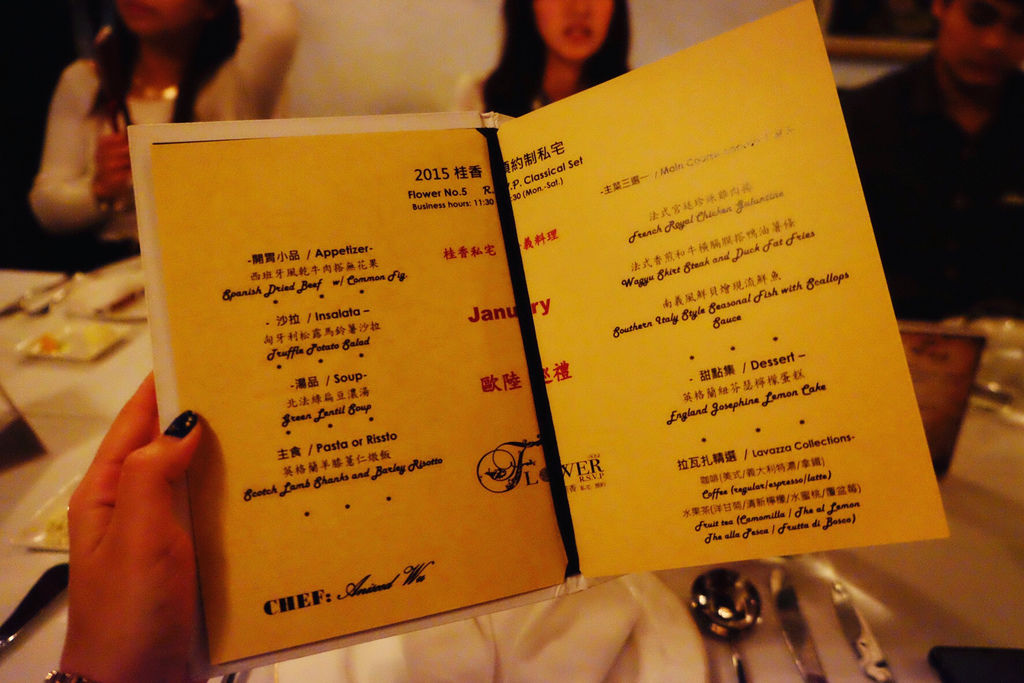 2015 桂香 預約制私宅
Flower No.5 R. V.P. Classical Set
Business hours: 11:30 :30 (Mon.-Sat.)
桂香私宅 義料理
January
歐陸 巡禮
-開胃小品 / Appetizer-
西班牙風乾牛肉搭無花果
Spanish Dried Beef w/ Common Fig
- 沙拉 / Insalata –
匈牙利松露馬鈴薯沙拉
Truffle Potato Salad
-湯品 / Soup-
北法綠扁豆濃湯
Green Lentil Soup
主食 / Pasta or Rissto
英格蘭羊膝薏仁燉飯
Scotch Lamb Shanks and Barley Risotto
CHEF:
FLOWER
R.S.V.P
-主菜三選一 / Main Course
法式宮廷珍珠雞肉捲
French Royal Chicken Galantine
法式香煎和牛橫膈膜搭鴨油薯條
Wagyu Skirt Steak and Duck Fat Fries
南義風鮮貝燴現流鮮魚
Southern Italy Style Seasonal Fish with Scallops
Sauce
- 甜點集 / Dessert –
英格蘭紐芬瑟檸檬蛋糕
England Josephine Lemon Cake
拉瓦扎精選 / Lavazza Collections-
咖啡(美式/義大利特濃/拿鐵)
Coffee (regular/espresso/latte)
水果茶(洋甘菊/清新檸檬/水蜜桃/覆盆莓)
Fruit tea (Camomilla / The al Lemon
The alla Pesca / Frutta di Bosco)